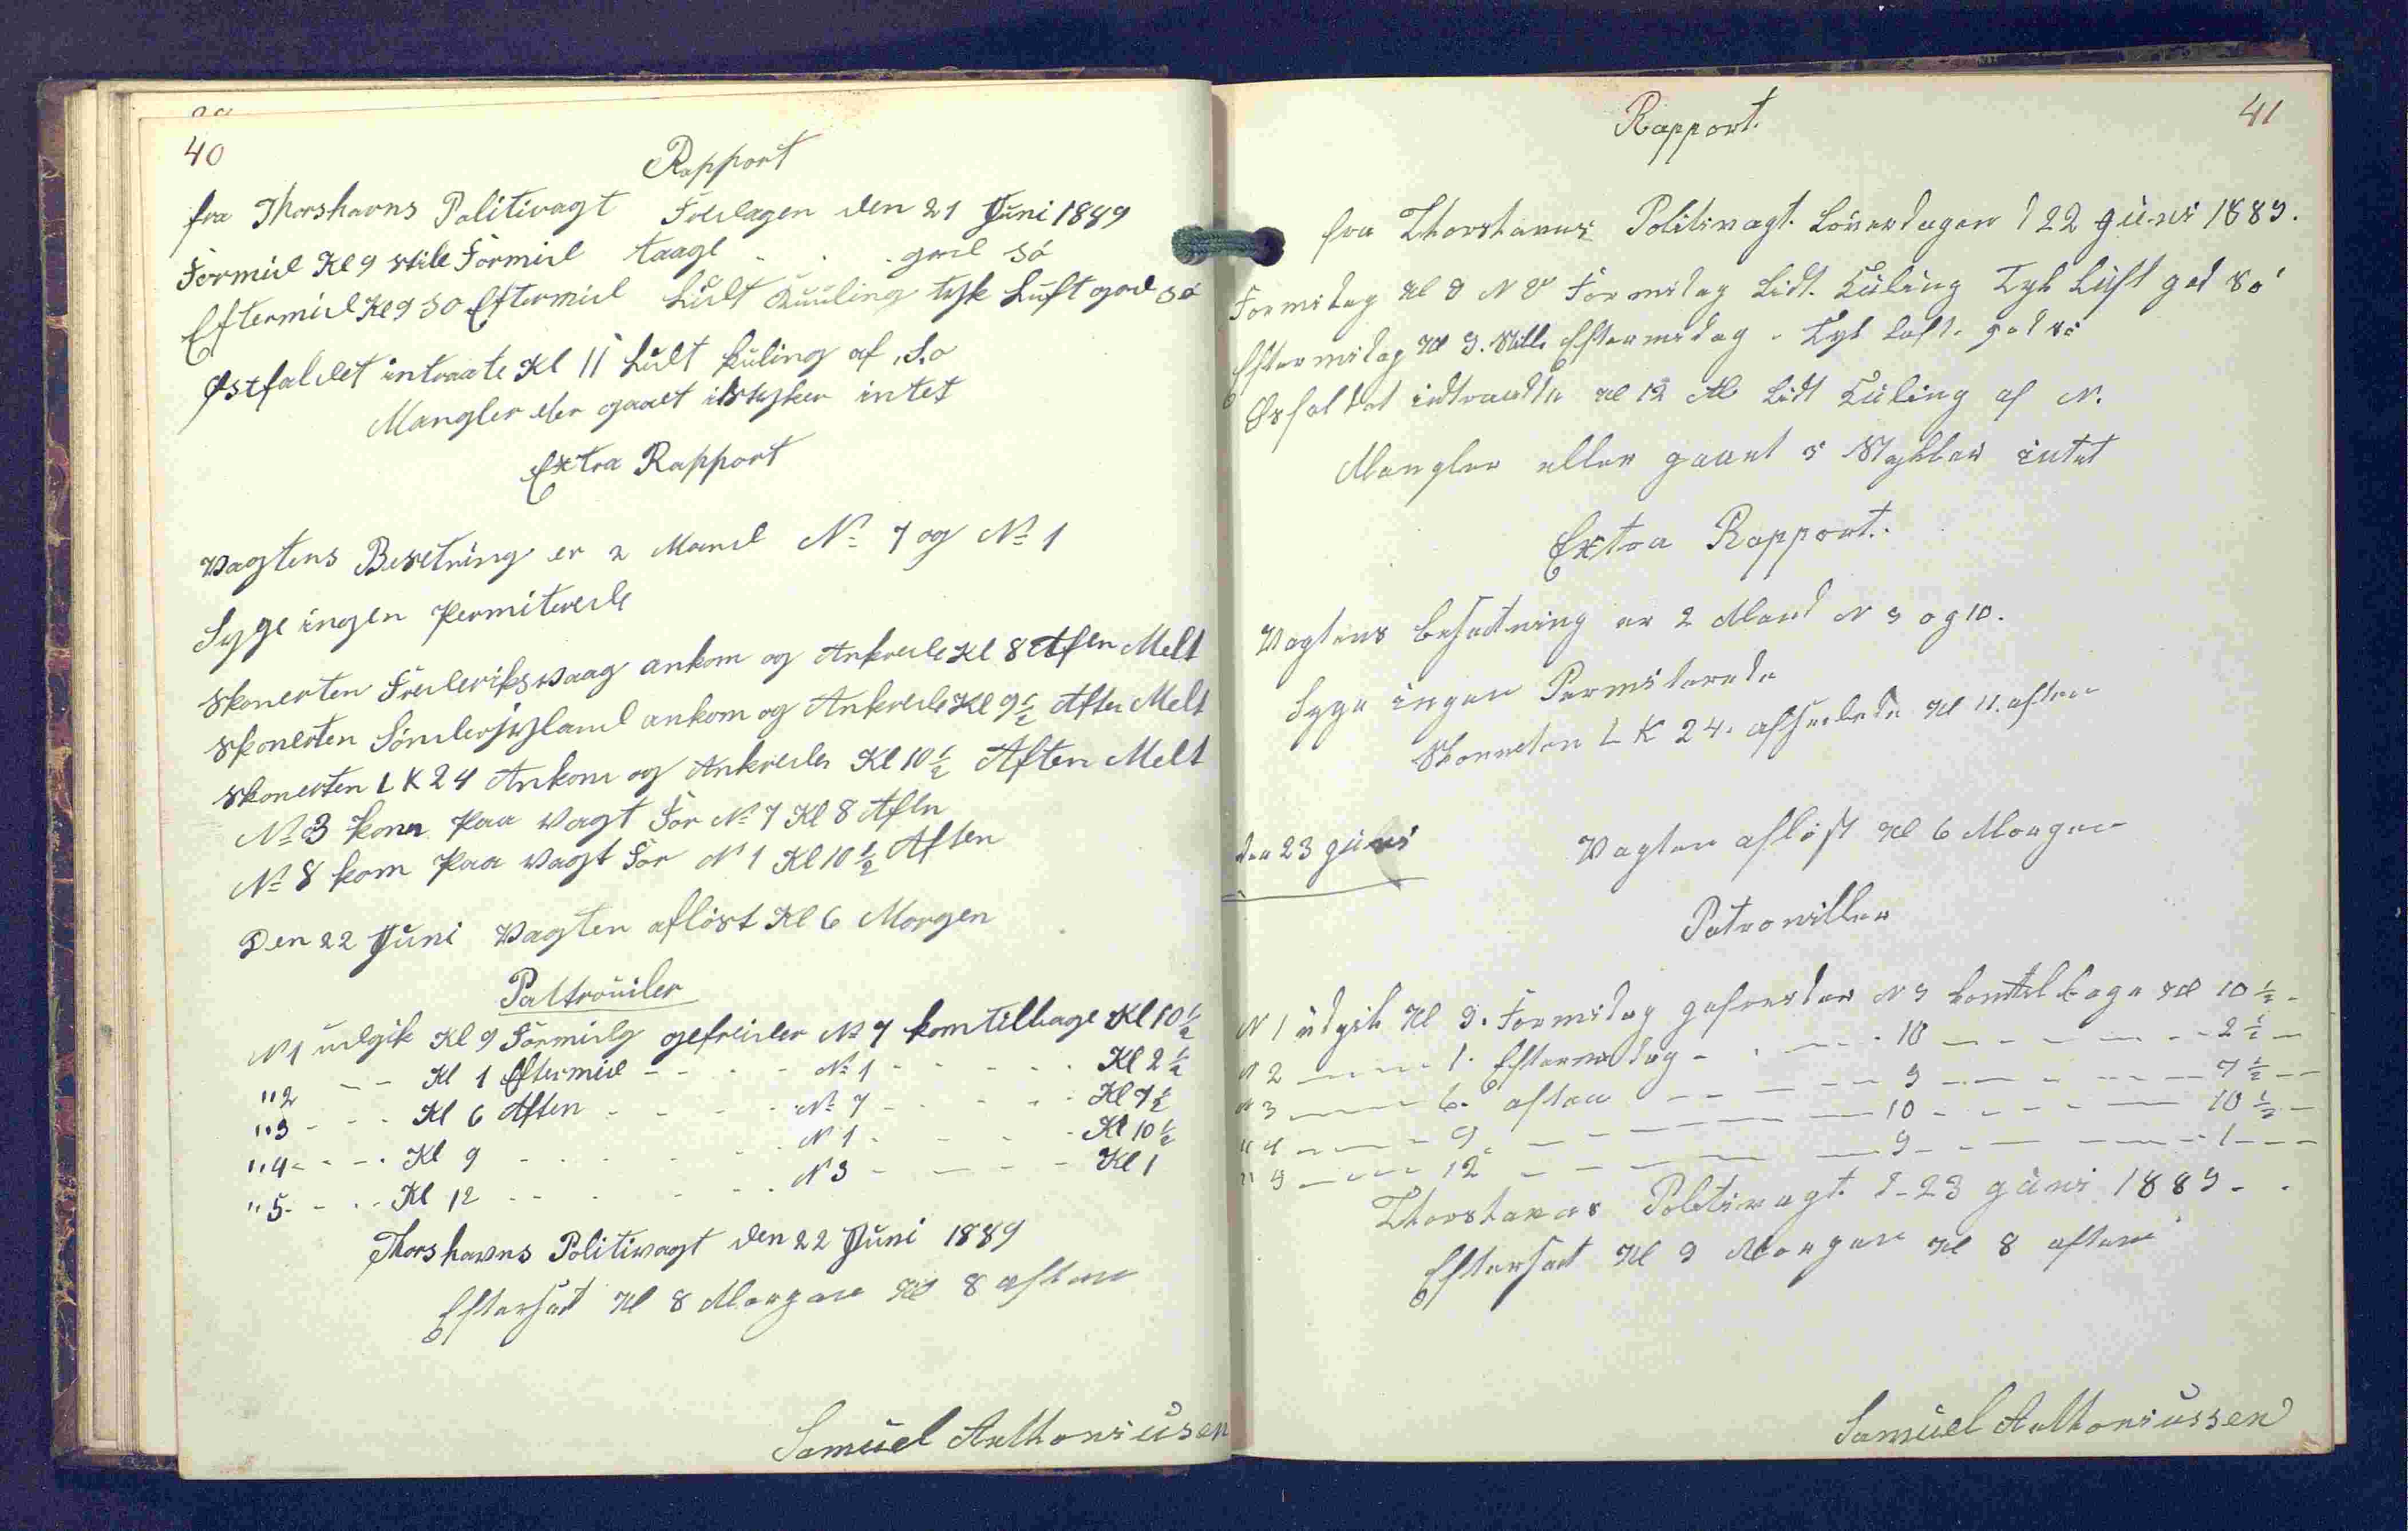 40
Rapport
fra Thorshavns Politivagt Fredagen den 21 Juni 1889
Formid Kl 9 stille Formid taage . . . god sö
Eftermid Kl 9 SO Eftermid Lidt Kuuling tyk Luft god sö
Østfaldet intraate Kl 11 Lidt kuling af S.o
Mangler eler gaaet istyker intet
Extra Rapport
Vagtens Besetning er 2 Mand No 7 og No 1
Syge ingen Permiterede
Skonerten Frederiksvaag ankom og Ankrede Kl 8 Aften Melt
Skonerten Sönderjyland ankom og Ankrede Kl 9½ Aften Melt
Skonerten LK 24 Ankom og Ankrede Kl 10½ Aften Melt
No 3 kom paa Vagt For No 7 Kl 8 Aften
No 8 kom paa Vagt For N 1 Kl 10½ Aften
Den 22 Juni Vagten aflöst Kl 6 Morgen
Pattrouiler
N 1 udgik Kl 9 Formidg gefreider No 7 kom tilbage Kl 10½
"2 - - Kl 1 Eftermid - - - - No 1 - - - - - Kl 2½
"3 - - - Kl 6 Aften - - - - No 7 - - - - Kl 7½
"4 - - - Kl 9 - - - - - N 1 - - - - Kl 10½
"5 - - - Kl 12 - - - - - N 3 - - - - Kl 1
Thorshavns Politivagt den 22 Juni 1889
Efterset Kl 8 Morgen Kl 8 aften
Samuel Anthoniusen
41
Rapport.
fra Thorshavns Politivagt. Löverdagen d 22 Juni 1889.
Formidag Kl 9 NV Formidag Lidt Kuling Tyk Luft god Sö
Eftermidag Kl 9. Stille Eftermidag - Tyk Luft. god sö
Østfaldet indtraadte Kl 12 Lidt Kuling af N.
Mangler eller gaaet i Stykker intet
Extra Rapport.
Vagtens besætning er 2 Mand N 9 og 10.
Syge ingen Permiterede
Skonnerten L K 24. afseilede Kl 11. aften
den 23 Juni
Vagten aflöst Kl 6 Morgen
Patrouiller
N 1 udgik Kl 9. Formidag gefreider N 9 kom tilbage Kl 10½ -
N 2 - - - - 1. Eftermidag - - - - 10 - - - - - 2½ -
N 3 - - - - 6. aften - - - - 9 - - - - - 7½ - -
" 4 - - - - 9 - - - - - 10 - - - - - 10½ -
" 5 - - - - 12 - - - - - 9 - - - - - 1 - - -
Thorshavns Politivagt. d - 23 Juni 1889 - .
Efterset Kl 9 Morgen Kl 8 aften
Samuel Anthoniussen